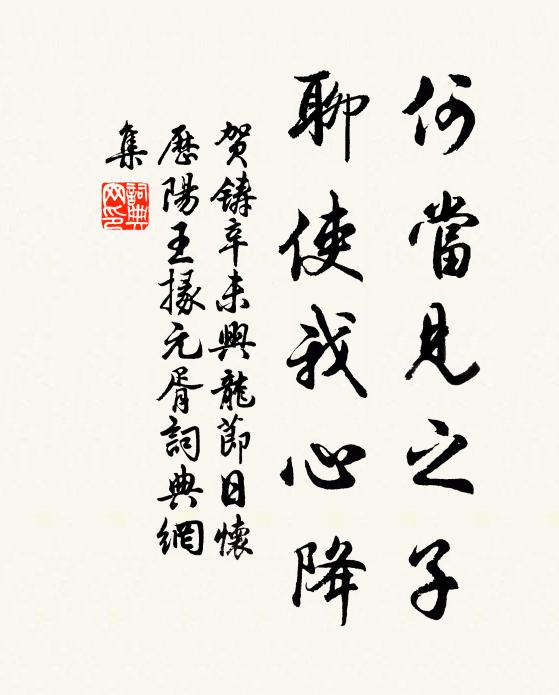 何當見之子
聊使我心降
贺鑄辛未興龍節日懷
歷陽王掾元胥詞典網
集
詞典
网印